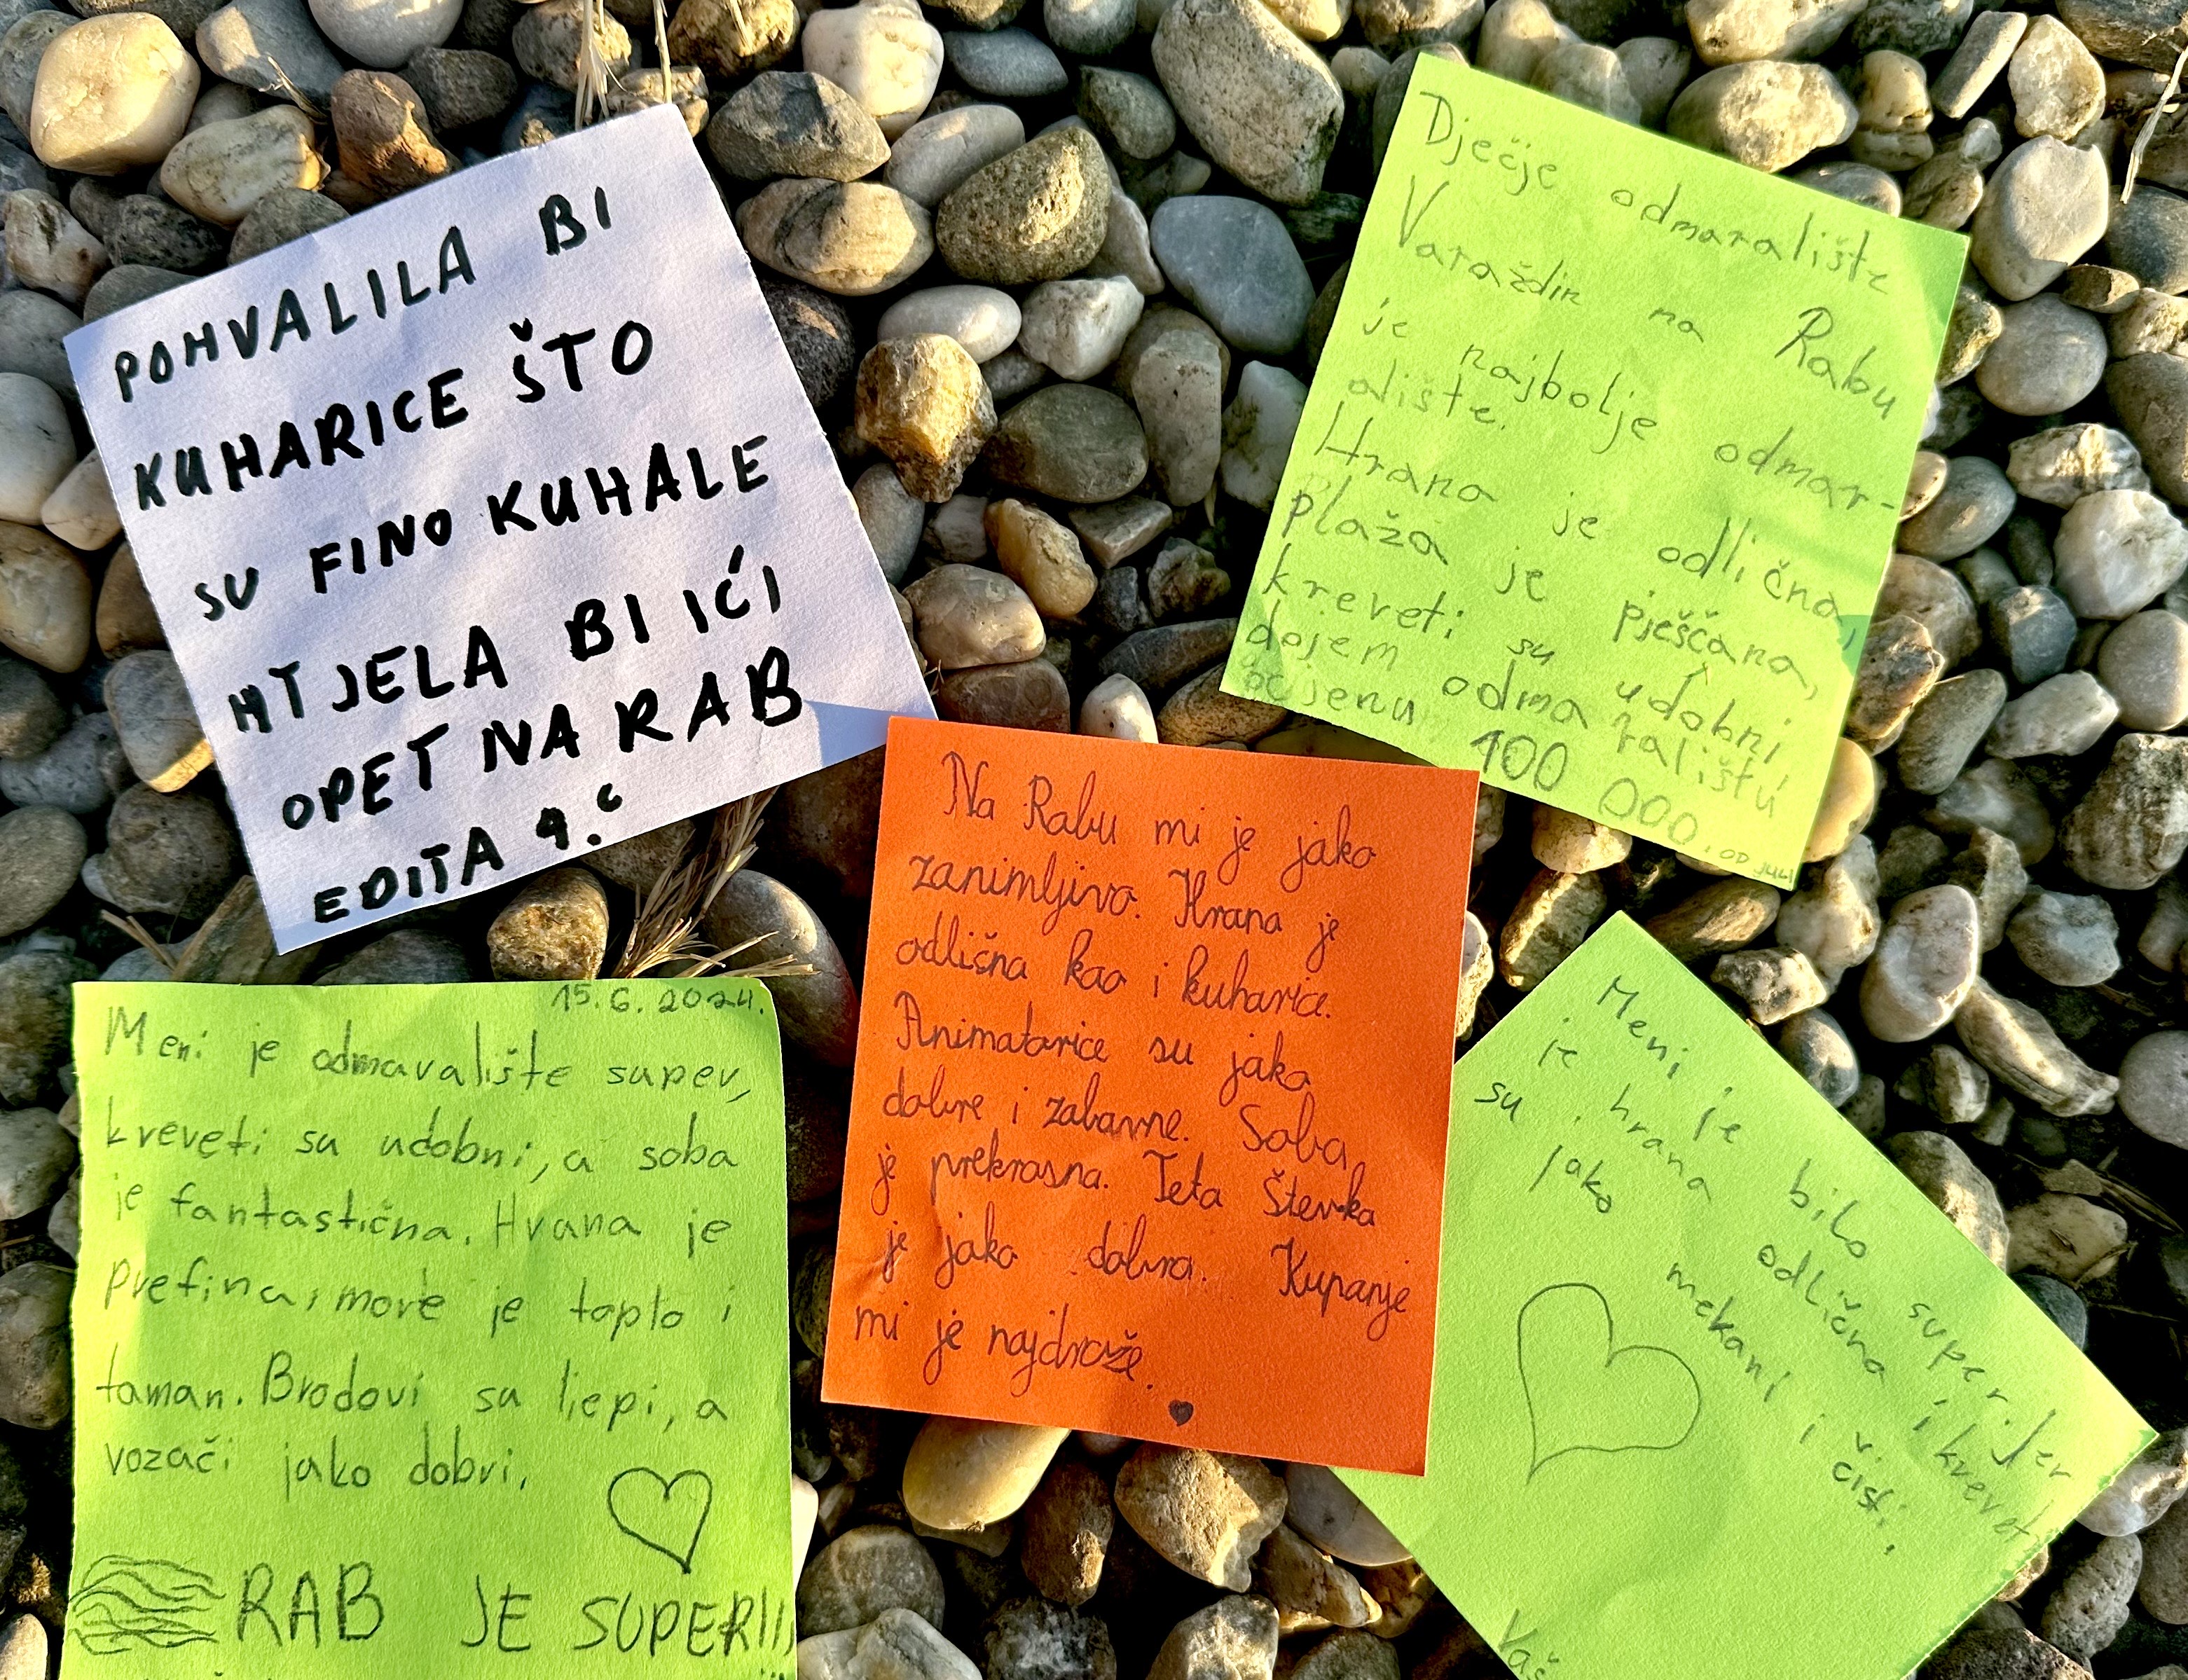 POHVALILA BI
KUHARICE ŠTO
SU FINO KUHALE
HTJELA BI IĆI
OPET NA RAB
EDITA 4.c
Dječje odmaralište
Varaždin na Rabu
je najbolje odmar-
alište.
Hrana je odlična,
plaža je pješčana,
kreveti su udobni,
dojem odmaralištu
ocjenu 100 000.
Na Rabu mi je jako
zanimljivo. Hrana je
odlična kao i kuharice.
Animatorice su jako
dobre i zabavne. Soba
je prekrasna. Teta Števka
je jako dobra. Kupanje
mi je najdraže.
15.6.2024.
Meni je odmaralište super,
kreveti su udobni, a soba
je fantastična. Hrana je
prefina, more je toplo i
taman. Brodovi su liepi, a
vozači jako dobri.
RAB JE SUPER!!
Meni je bilo super. Jer
je hrana odlična i kreveti
su jako mekani i čisti.
Vaš